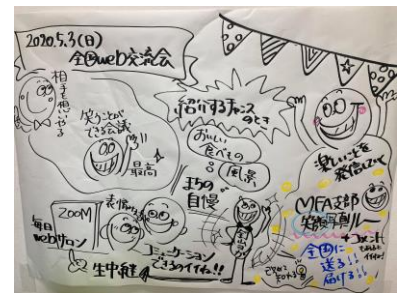 2020.5.3(日)
全国web交流会
相手を想いやる
笑うことが
できる会議
最高
紹介するチャンス
のとき
おいしい
食べもの
風景
まちの
自慢
楽しいことを
発信していく
MFA支部
リレー
+コメント
全国に
送る!!
届ける!!
毎日
webサロン
ZOOM
表情
生中継
コミュニケーション
できるのイイネ!!